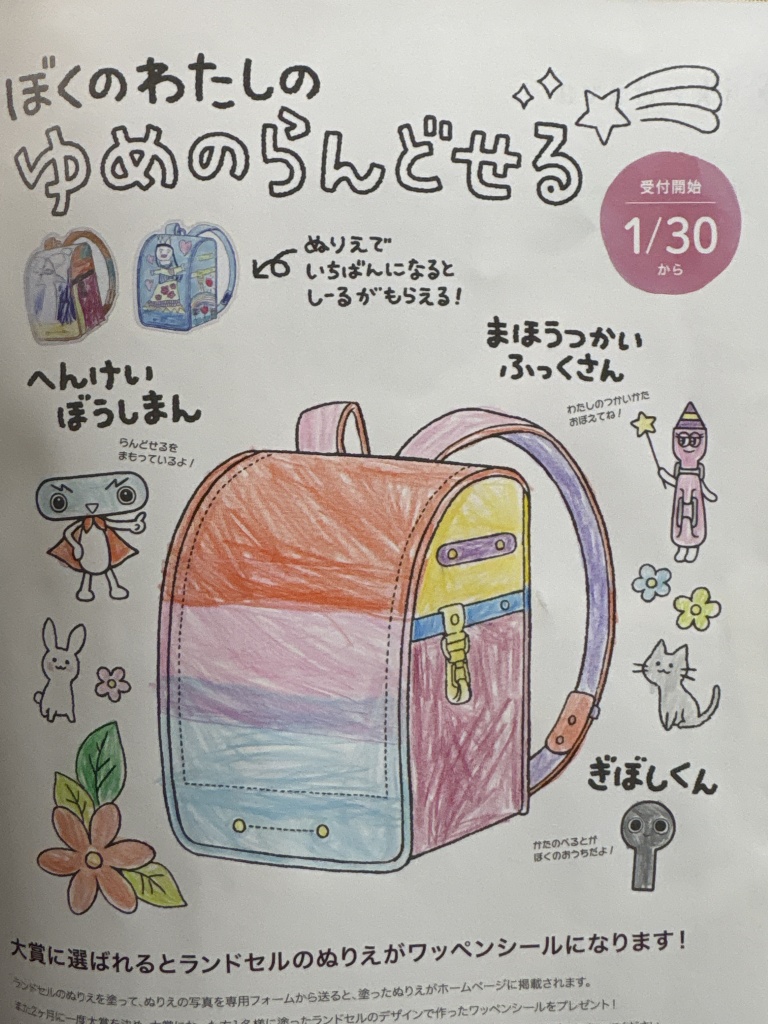 ぼくのわたしの
ゆめのらんどせる
受付開始
1/30
から
ぬりえで
いちばんになると
しーるがもらえる!
まほうつかい
ふっくさん
わたしのつかいかた
おぼえてね!
へんけい
ぼうしまん
らんどせるを
まもっているよ!
ぎぼしくん
かたのべるとが
ぼくのおうちだよ!
大賞に選ばれるとランドセルのぬりえがワッペンシールになります!
ランドセルのぬりえを塗って、ぬりえの写真を専用フォームから送ると、塗ったぬりえがホームページに掲載されます。
2ヶ月に一度大賞を決め、大賞になった方1名様に塗ったランドセルのデザインで作ったワッペンシールをプレゼント!